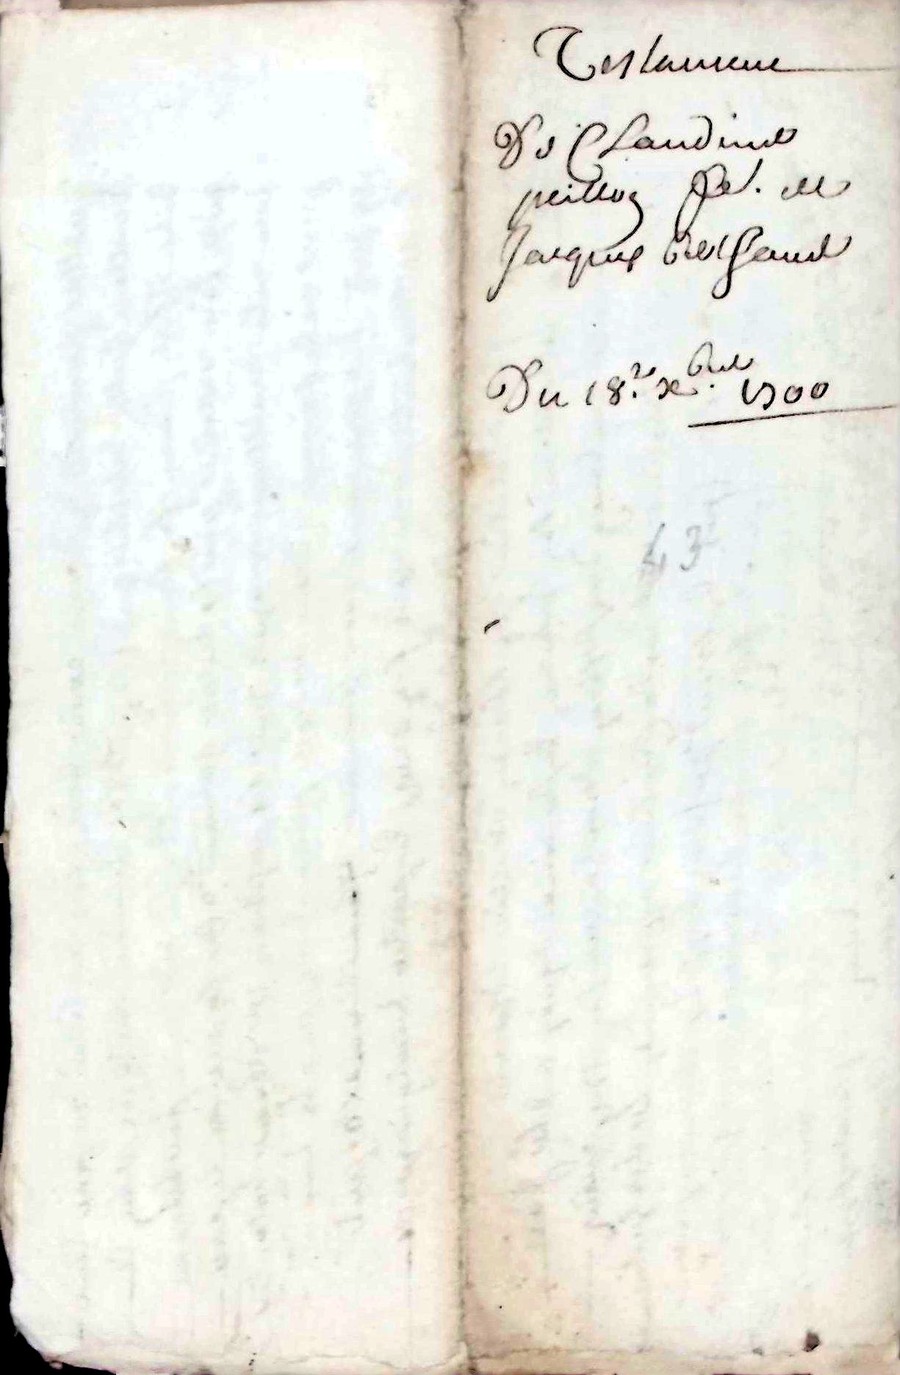 Testament
De Claudine
peilloz fe. de
Jacques
Du 18.e xbre 1700
43